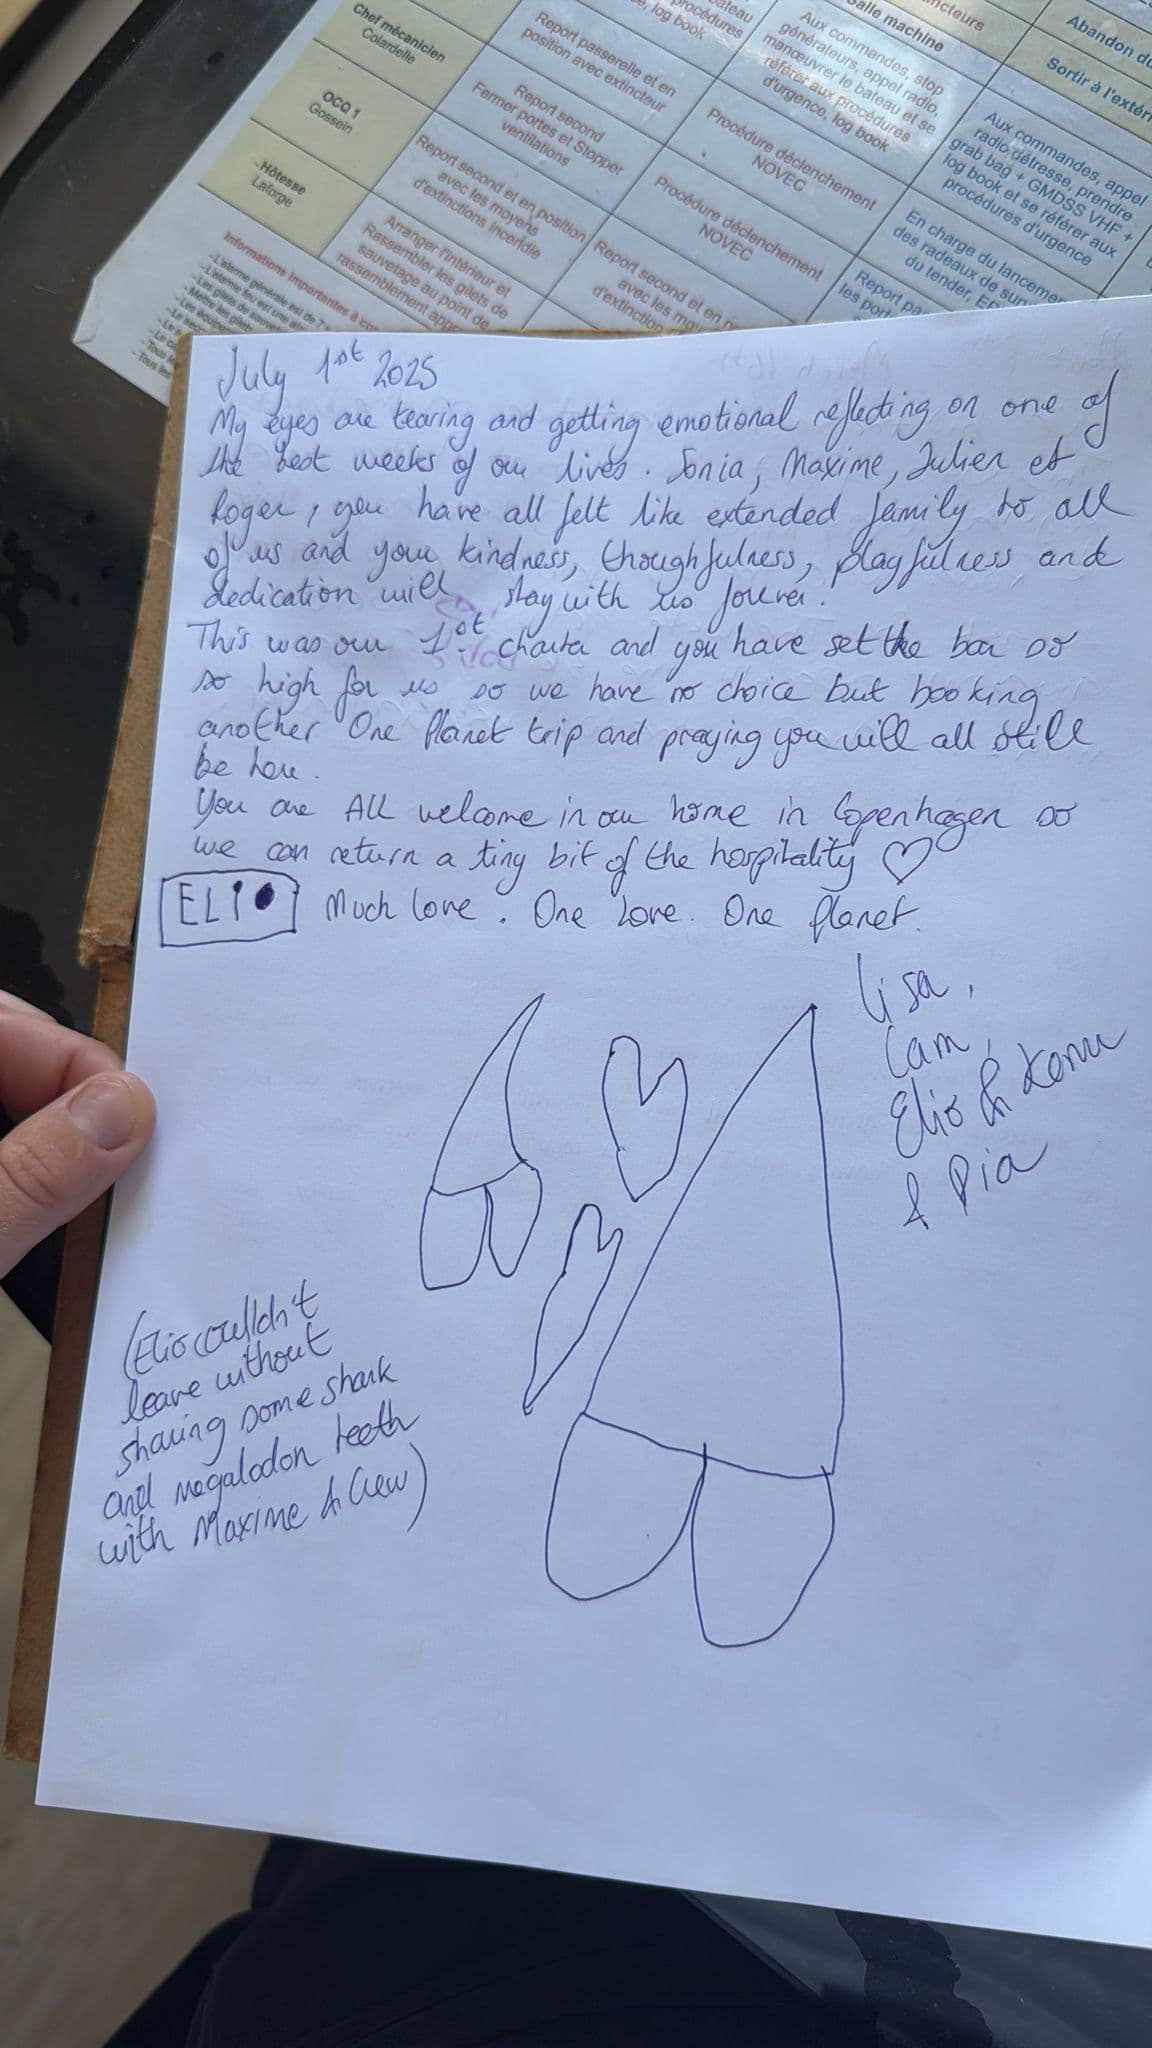 Chef mécanicien
Colardelle
Report passerelle et en
position avec extincteur
procédures
log book
Aux commandes, stop
générateurs, appel radio,
manœuvrer le bateau et se
référer aux procédures
d'urgence, log book
salle machine
Abandon du
Sortir à l'extéri
OCQ 1
Gossein
Report second
Fermer portes et Stopper
ventilations
Procédure déclenchement
NOVEC
Aux commandes, appel
radio détresse, prendre
grab bag + GMDSS VHF +
log book et se référer aux
procédures d'urgence
Hôtesse
Laforge
Report second et en position
avec les moyens
d'extinctions incendie
Procédure déclenchement
NOVEC
En charge du lancemen
des radeaux de sur
du tender, EP
Arranger l'intérieur et
Rassembler les gilets de
sauvetage au point de
rassemblement
Report second et en
avec les mo
d'extinction
Report pa
les port
Informations importantes à
July 1st 2025
My eyes are tearing and getting emotional reflecting on one of
the best weeks of our lives. Sonia, Maxime, Julien et
Roger, you have all felt like extended family to all
of us and your kindness, thoughfulness, playfulness and
dedication will stay with us forever.
This was our 1st charter and you have set the bar so
so high for us so we have no choice but booking
another One Planet trip and praying you will all still
be here.
You are ALL welcome in our home in Copenhagen so
we can return a tiny bit of the hospitality ♡
ELIO Much love. One Love. One Planet.
Lisa,
Cam,
Elio &
& Pia
(Elio couldn't
leave without
sharing some shark
and megalodon teeth
with Maxime & Crew)